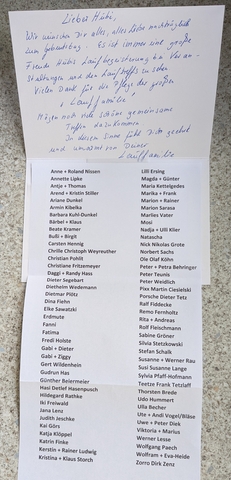 Lieber Hübi,
Wir wünschen Dir alles, alles Liebe nachträglich
zum Geburtstag. Es ist immer eine große
Freude Hübis Laufbegeisterung bei Veran-
staltungen und den Lauftreffs zu sehen
Vielen Dank für die Pflege der großen
Lauffamilie
Mögen noch viele schöne gemeinsame
Treffen dazukommen
In diesem Sinne fühl Dich gedrückt
und umarmt von Deiner
Lauffamilie
Anne + Roland Nissen
Annette Lipke
Antje + Thomas
Arend + Kristin Stiller
Ariane Dunkel
Armin Kibelka
Barbara Kuhl-Dunkel
Bärbel + Klaus
Beate Kramer
Bulli + Birgit
Carsten Hennig
Chrille Christoph Weyreuther
Christian Pohlit
Christiane Fritzemeyer
Daggi + Randy Hass
Dieter Segebart
Dietheim Wedemann
Dietmar Plötz
Dina Fiehn
Elke Sawatzki
Erdmute
Fanni
Fatima
Fredi Holste
Gabi + Dieter
Gabi + Ziggy
Gert Wildenhein
Gudrun Has
Günther Beiermeier
Hasi Detlef Hasenpusch
Hildegard Rathke
Iki Freiwald
Jana Lenz
Judith Jeschke
Kai Görs
Katja Klöppel
Katrin Finke
Kerstin + Rainer Ludwig
Kristina + Klaus Storch
Lilli Ersing
Magda + Günter
Maria Kettelgedes
Marika + Frank
Marion + Rainer
Marion Sarasa
Marlies Vater
Mosi
Nadja + Ulli Klier
Natascha
Nick Nikolas Grote
Norbert Sachs
Ole Olaf Köhn
Peter + Petra Behringer
Peter Teunis
Peter Weidlich
Pixx Martin Ciesielski
Porsche Dieter Tetz
Ralf Fiddecke
Remo Fernholtz
Rita + Andreas
Rolf Fleischmann
Sabine Gröner
Silvia Stetzkowski
Stefan Schalk
Susanne + Werner Rau
Susi Susanne Lange
Sylvia Pfaff-Hofmann
Teetze Frank Tetzlaff
Thorsten Brede
Udo Hummert
Ulla Becher
Ute + Andi Vogel/Bläser
Uwe + Peter Diek
Viktoria + Marius
Werner Lesse
Wolfgang Paech
Wolfram + Eva-Heide
Zorro Dirk Zenz